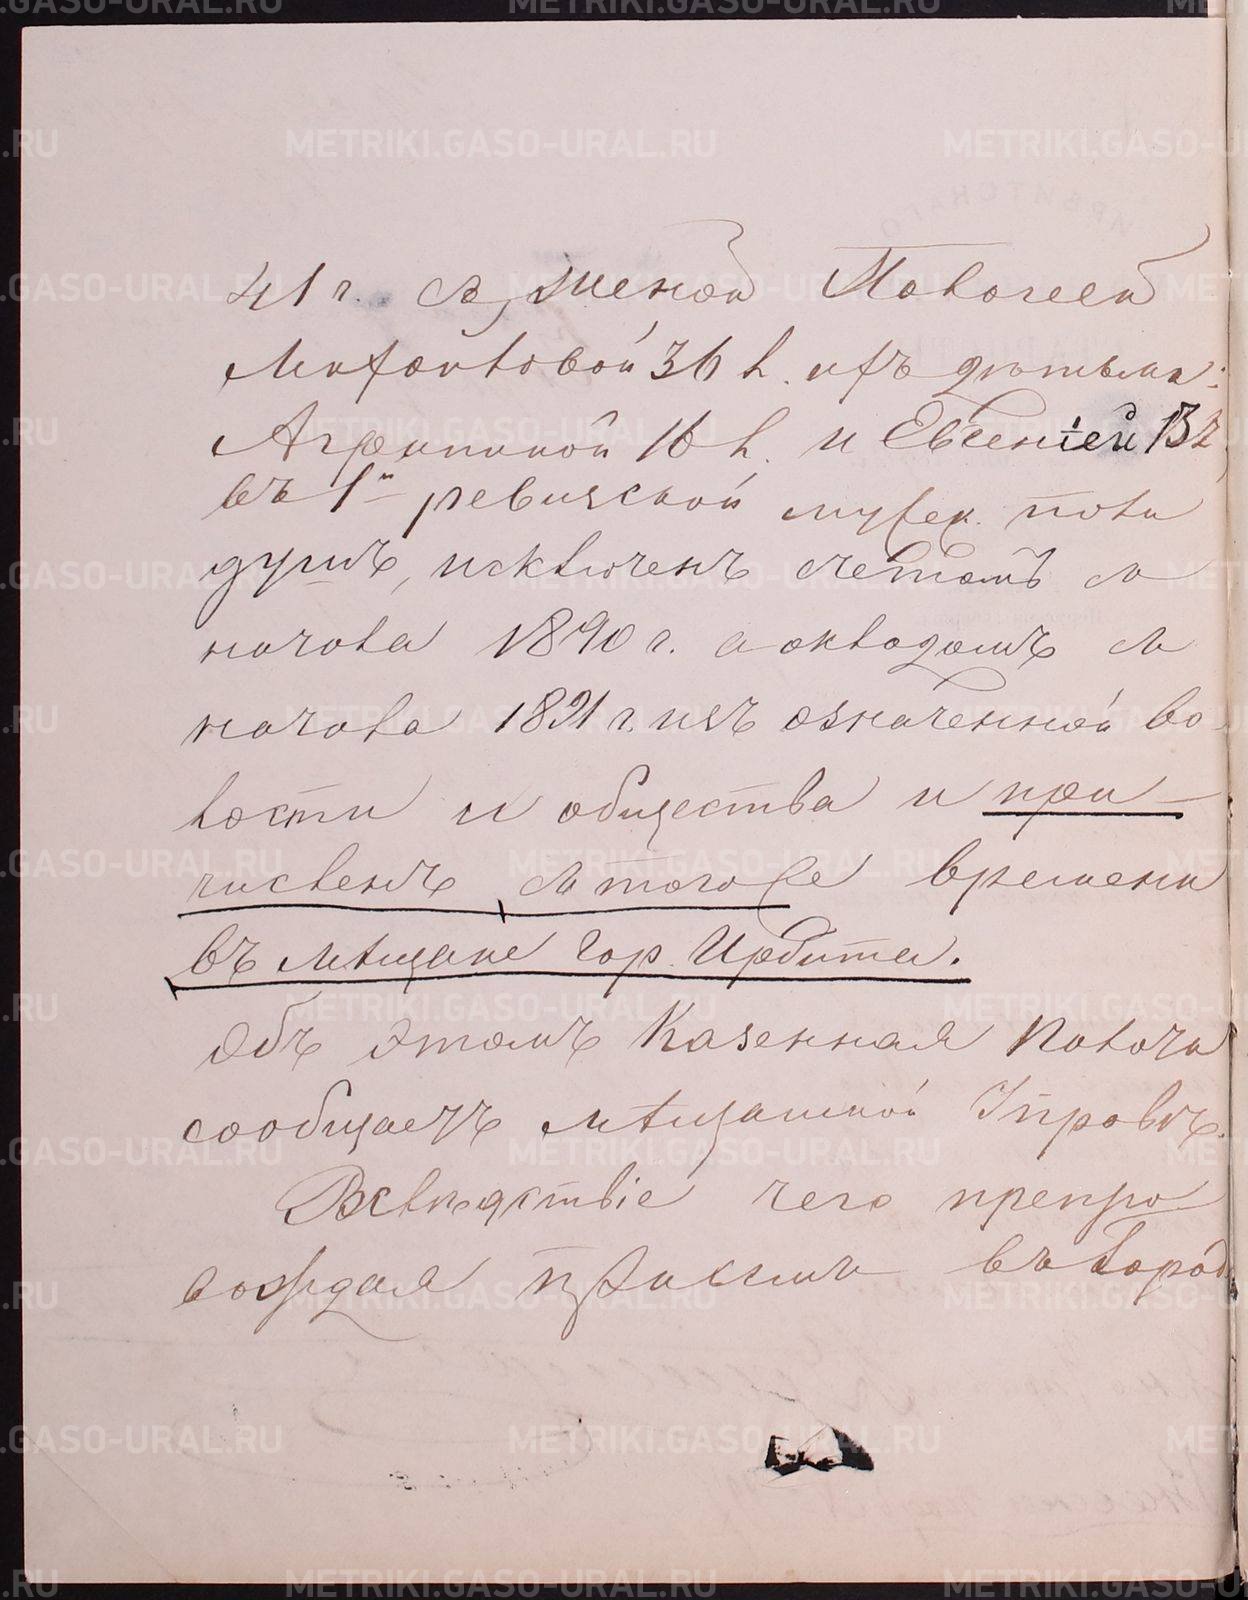 41 г. съ женой Пелагеей
36 л. и съ дѣтьми:
Агриппиной 16 л. и Евгеніей 13 л
въ 1й ревизской мужск. пола
душѣ, исключенъ счетомъ съ
начала 1890 г. а окладомъ съ
начала 1891 г. изъ означенной во-
лости и общества и при-
численъ съ того же времени
въ мѣщане гор. Ирбита.
Объ этомъ Казенная Палата
сообщаетъ мѣщанской Управѣ.
Вслѣдствіе чего препро-
вождая при семъ въ Город
METRIKI.GASO-URAL.RU